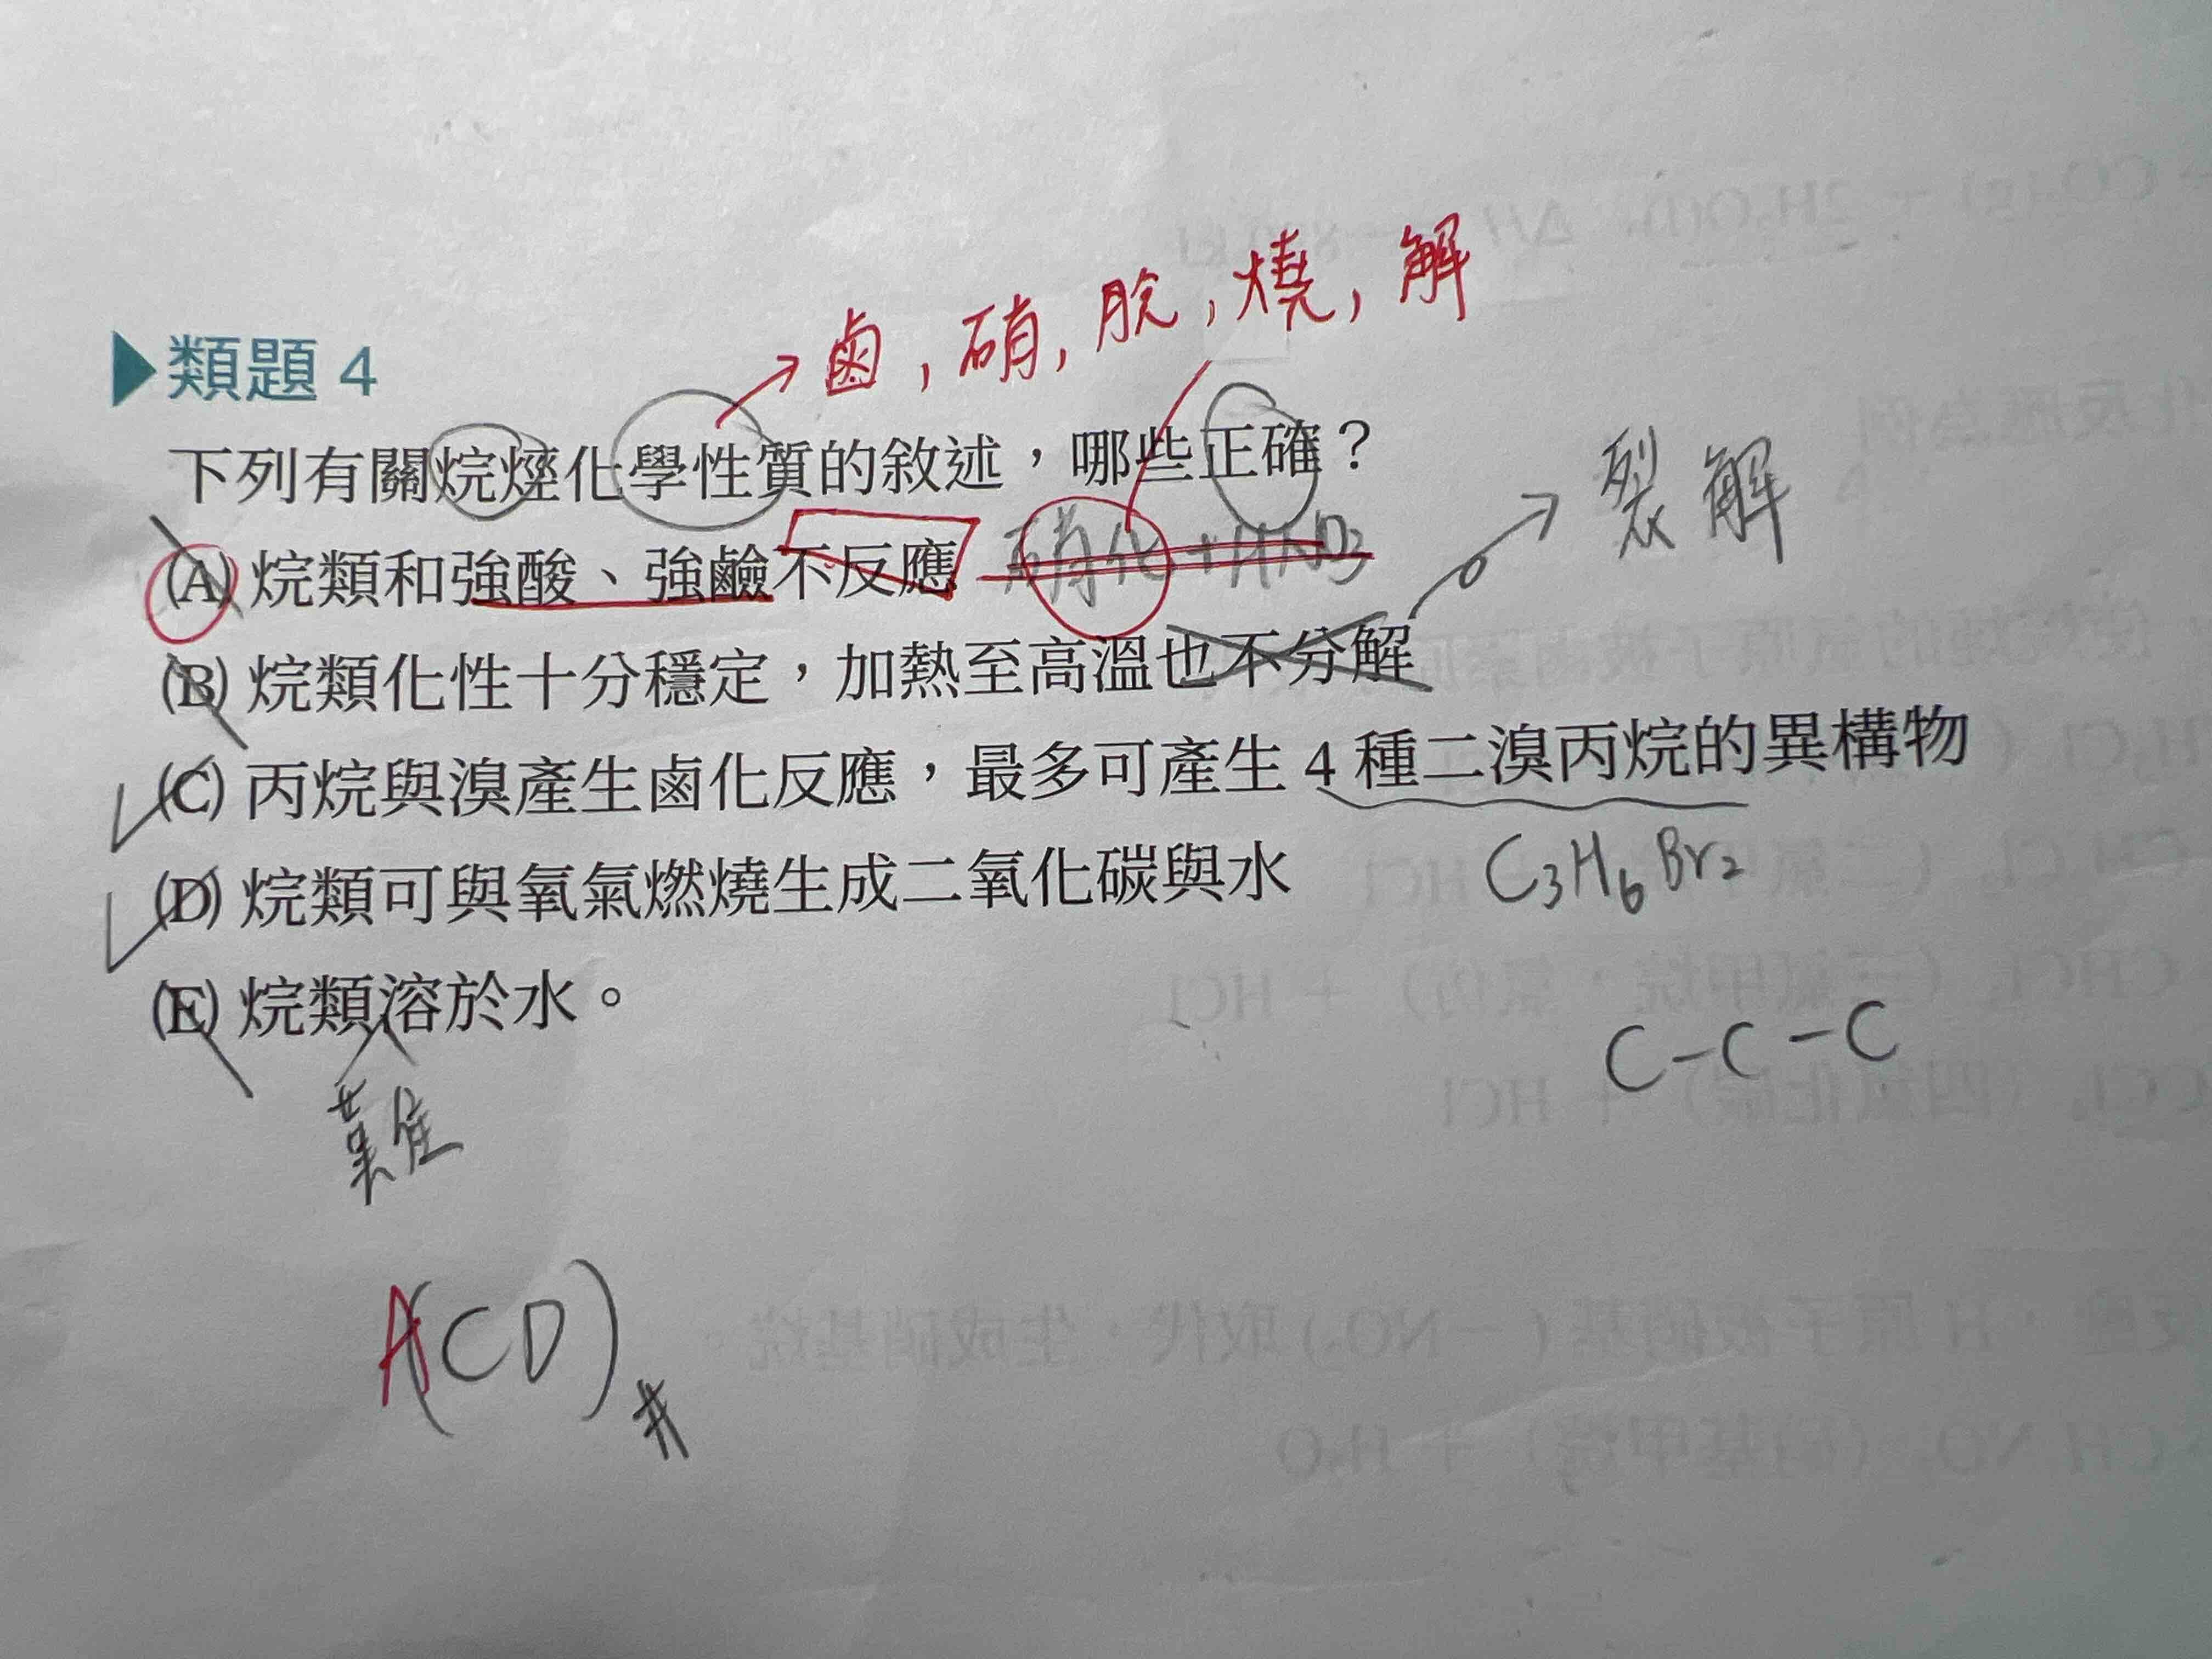 鹵,硝,脫,燒,解
▶類題 4
下列有關烷烴化學性質的敘述,哪些正確?
裂解
(A) 烷類和強酸、強鹼不反應 硝化+HNO3
(B) 烷類化性十分穩定,加熱至高溫也不分解
(C) 丙烷與溴產生鹵化反應,最多可產生 4 種二溴丙烷的異構物
C3H6Br2
(D) 烷類可與氧氣燃燒生成二氧化碳與水
(E) 烷類溶於水。
C-C-C
難
A(CD)#